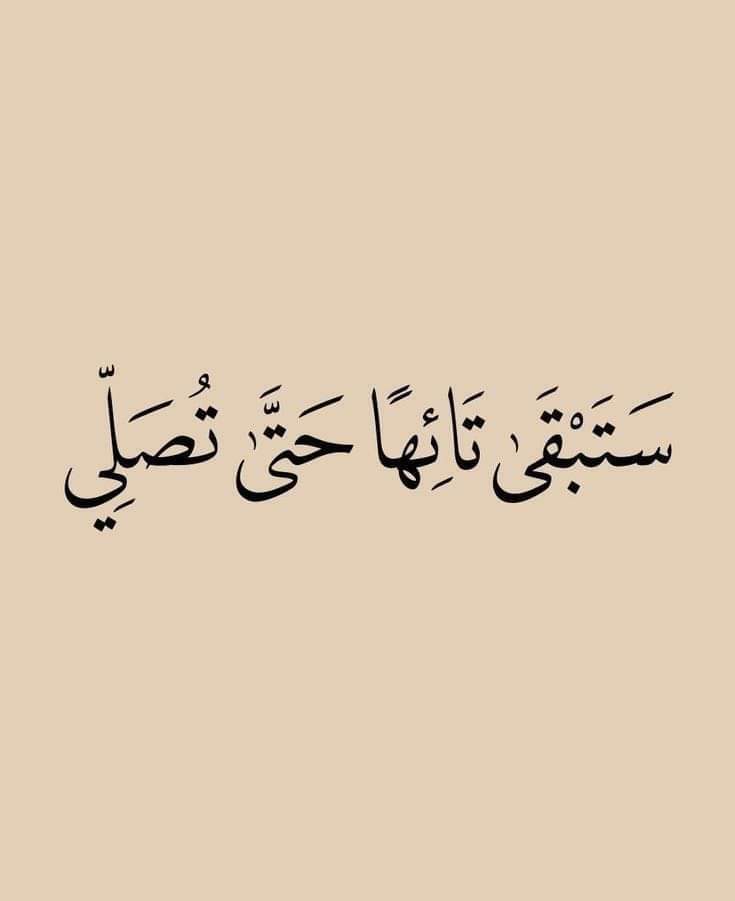 سَتَبْقَىٰ تَائِهًا حَتَّىٰ تُصَلِّي